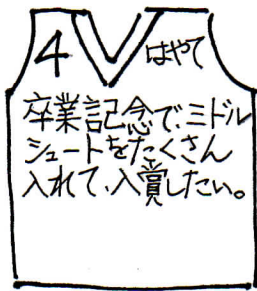 4 はやて
卒業記念で、ミドル
シュートをたくさん
入れて、入賞したい。